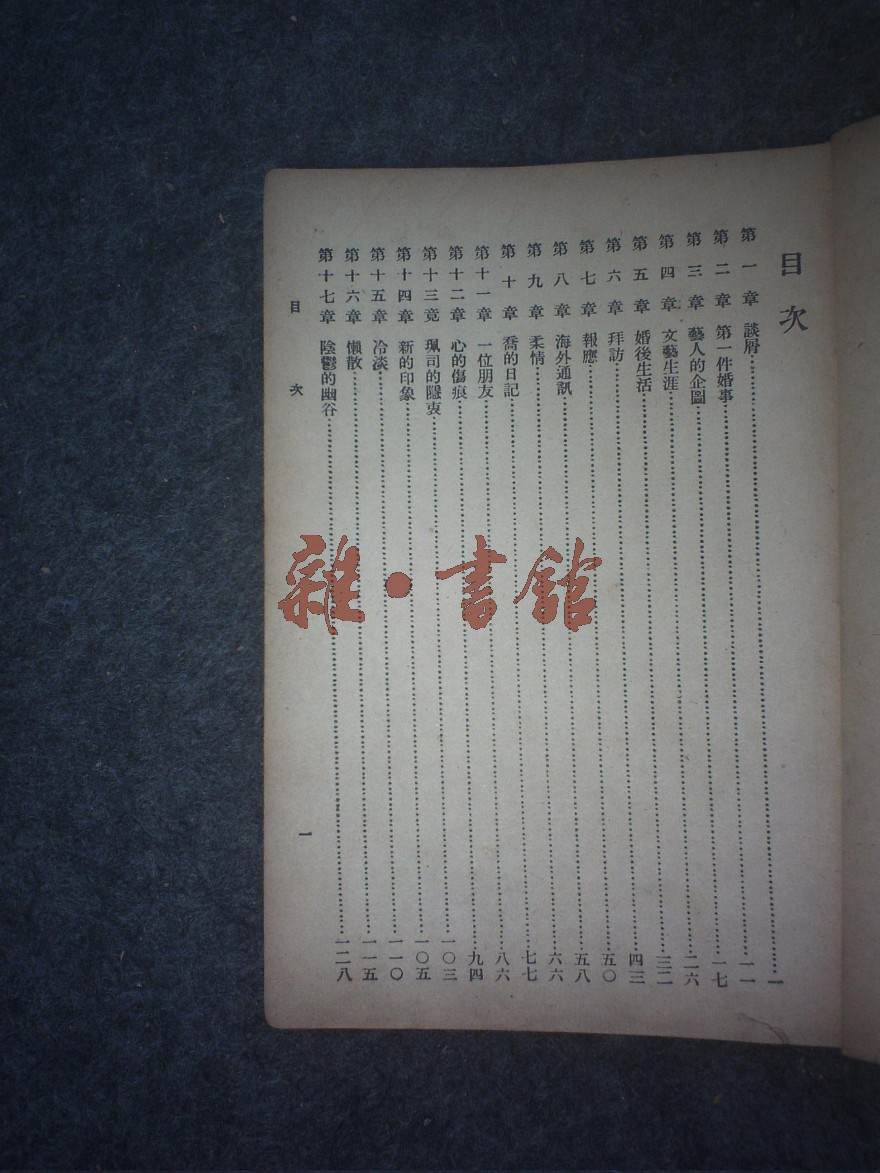 目次
第一章 談屑……一
第二章 第一件婚事……一一
第三章 藝人的企圖……一七
第四章 文藝生涯……二六
第五章 婚後生活……三二
第六章 拜訪……四三
第七章 報應……五〇
第八章 海外通訊……五八
第九章 柔情……六六
第十章 喬的日記……七七
第十一章 一位朋友……八六
第十二章 心的傷痕……九四
第十三竟 珮司的隱衷……一〇三
第十四章 新的印象……一〇五
第十五章 冷淡……一一〇
第十六章 懶散……一一五
第十七章 陰鬱的幽谷……一二八
目次 一
雜·書館